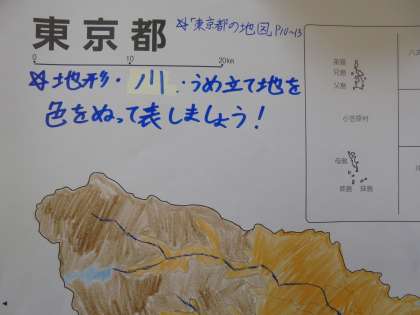 東京都
☆「東京都の地図」P10~13
0 10 20km
☆地形・川・うめ立て地を
色をぬって表しましょう！
父島
小笠原村
母島